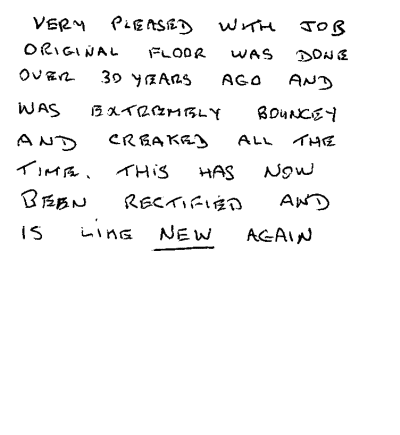 VERY PLEASED WITH JOB
ORIGINAL FLOOR WAS DONE
OVER 30 YEARS AGO AND
WAS EXTREMELY BOUNCEY
AND CREAKED ALL THE
TIME. THIS HAS NOW
BEEN RECTIFIED AND
IS LIKE NEW AGAIN